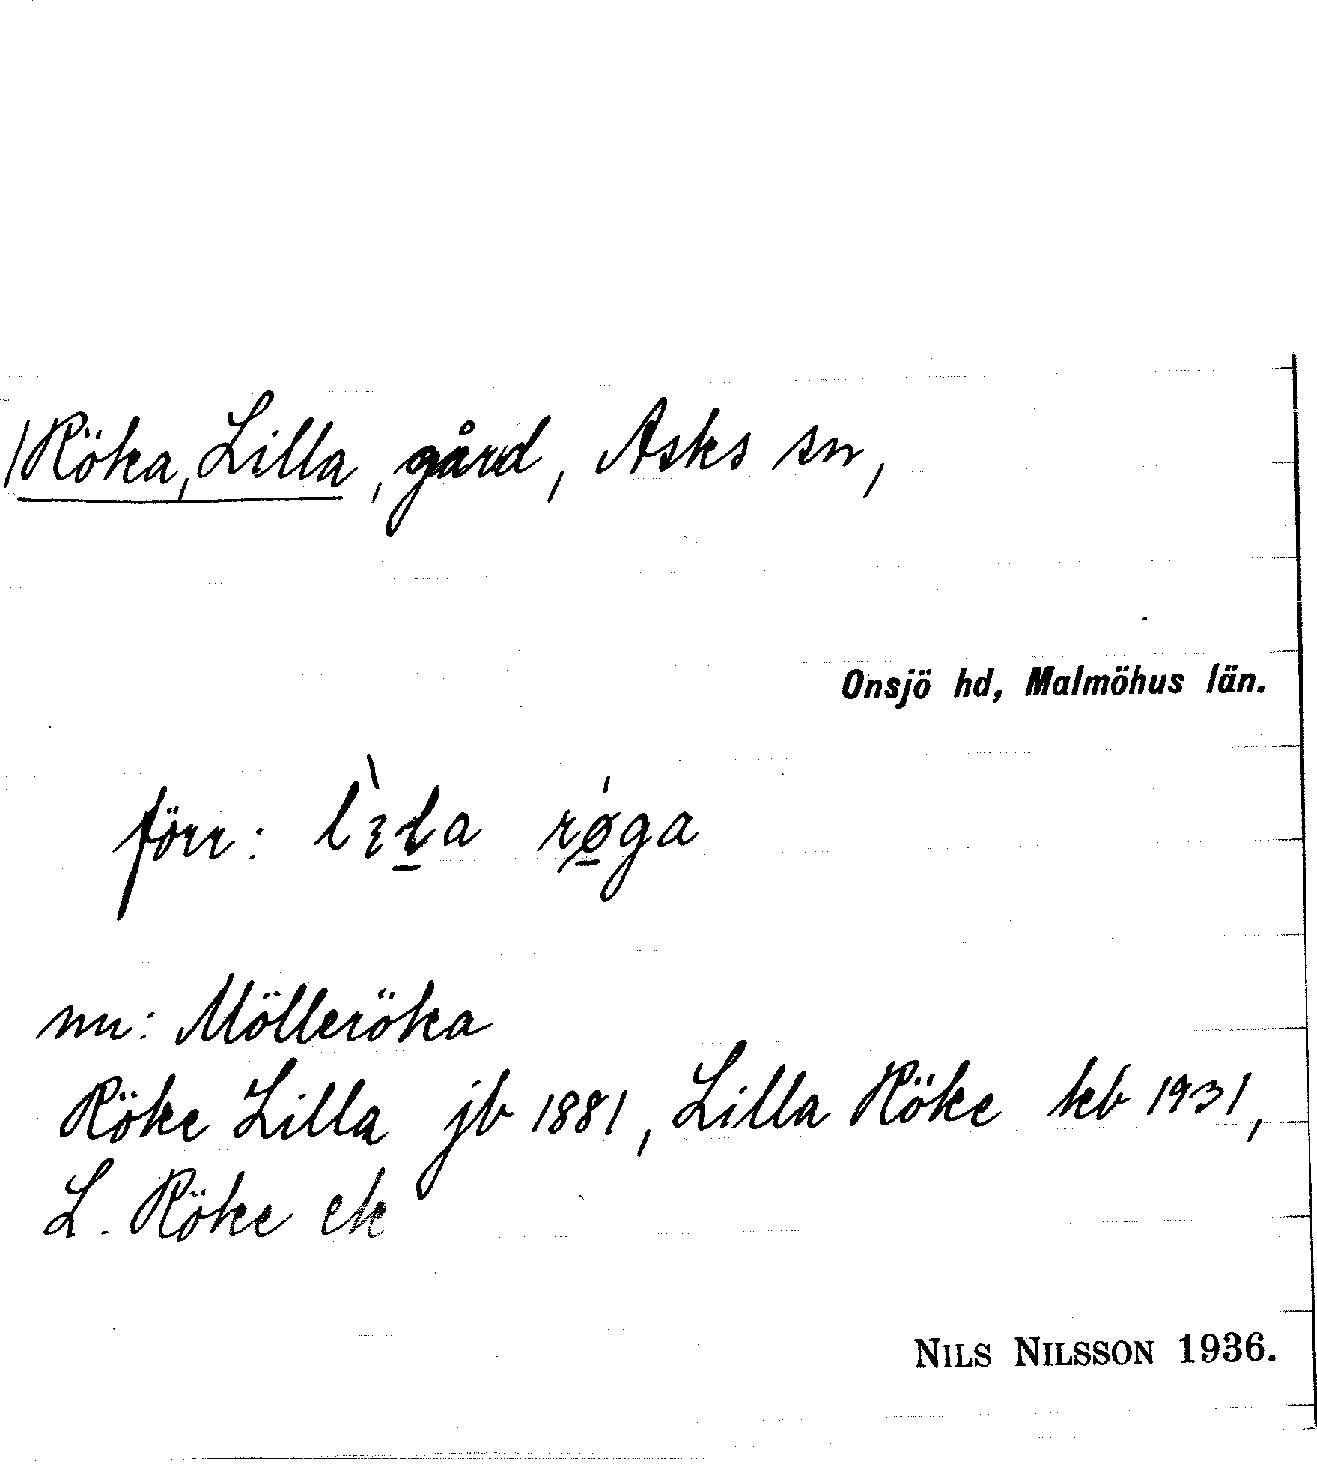 Röka, Lilla, gård, Asks sn,
Onsjö hd, Malmöhus län.
förr: lìla røga
nu: Mölleröka
Röke Lilla jb 1881, Lilla Röke kb 1931,
L. Röke ek
NILS NILSSON 1936.